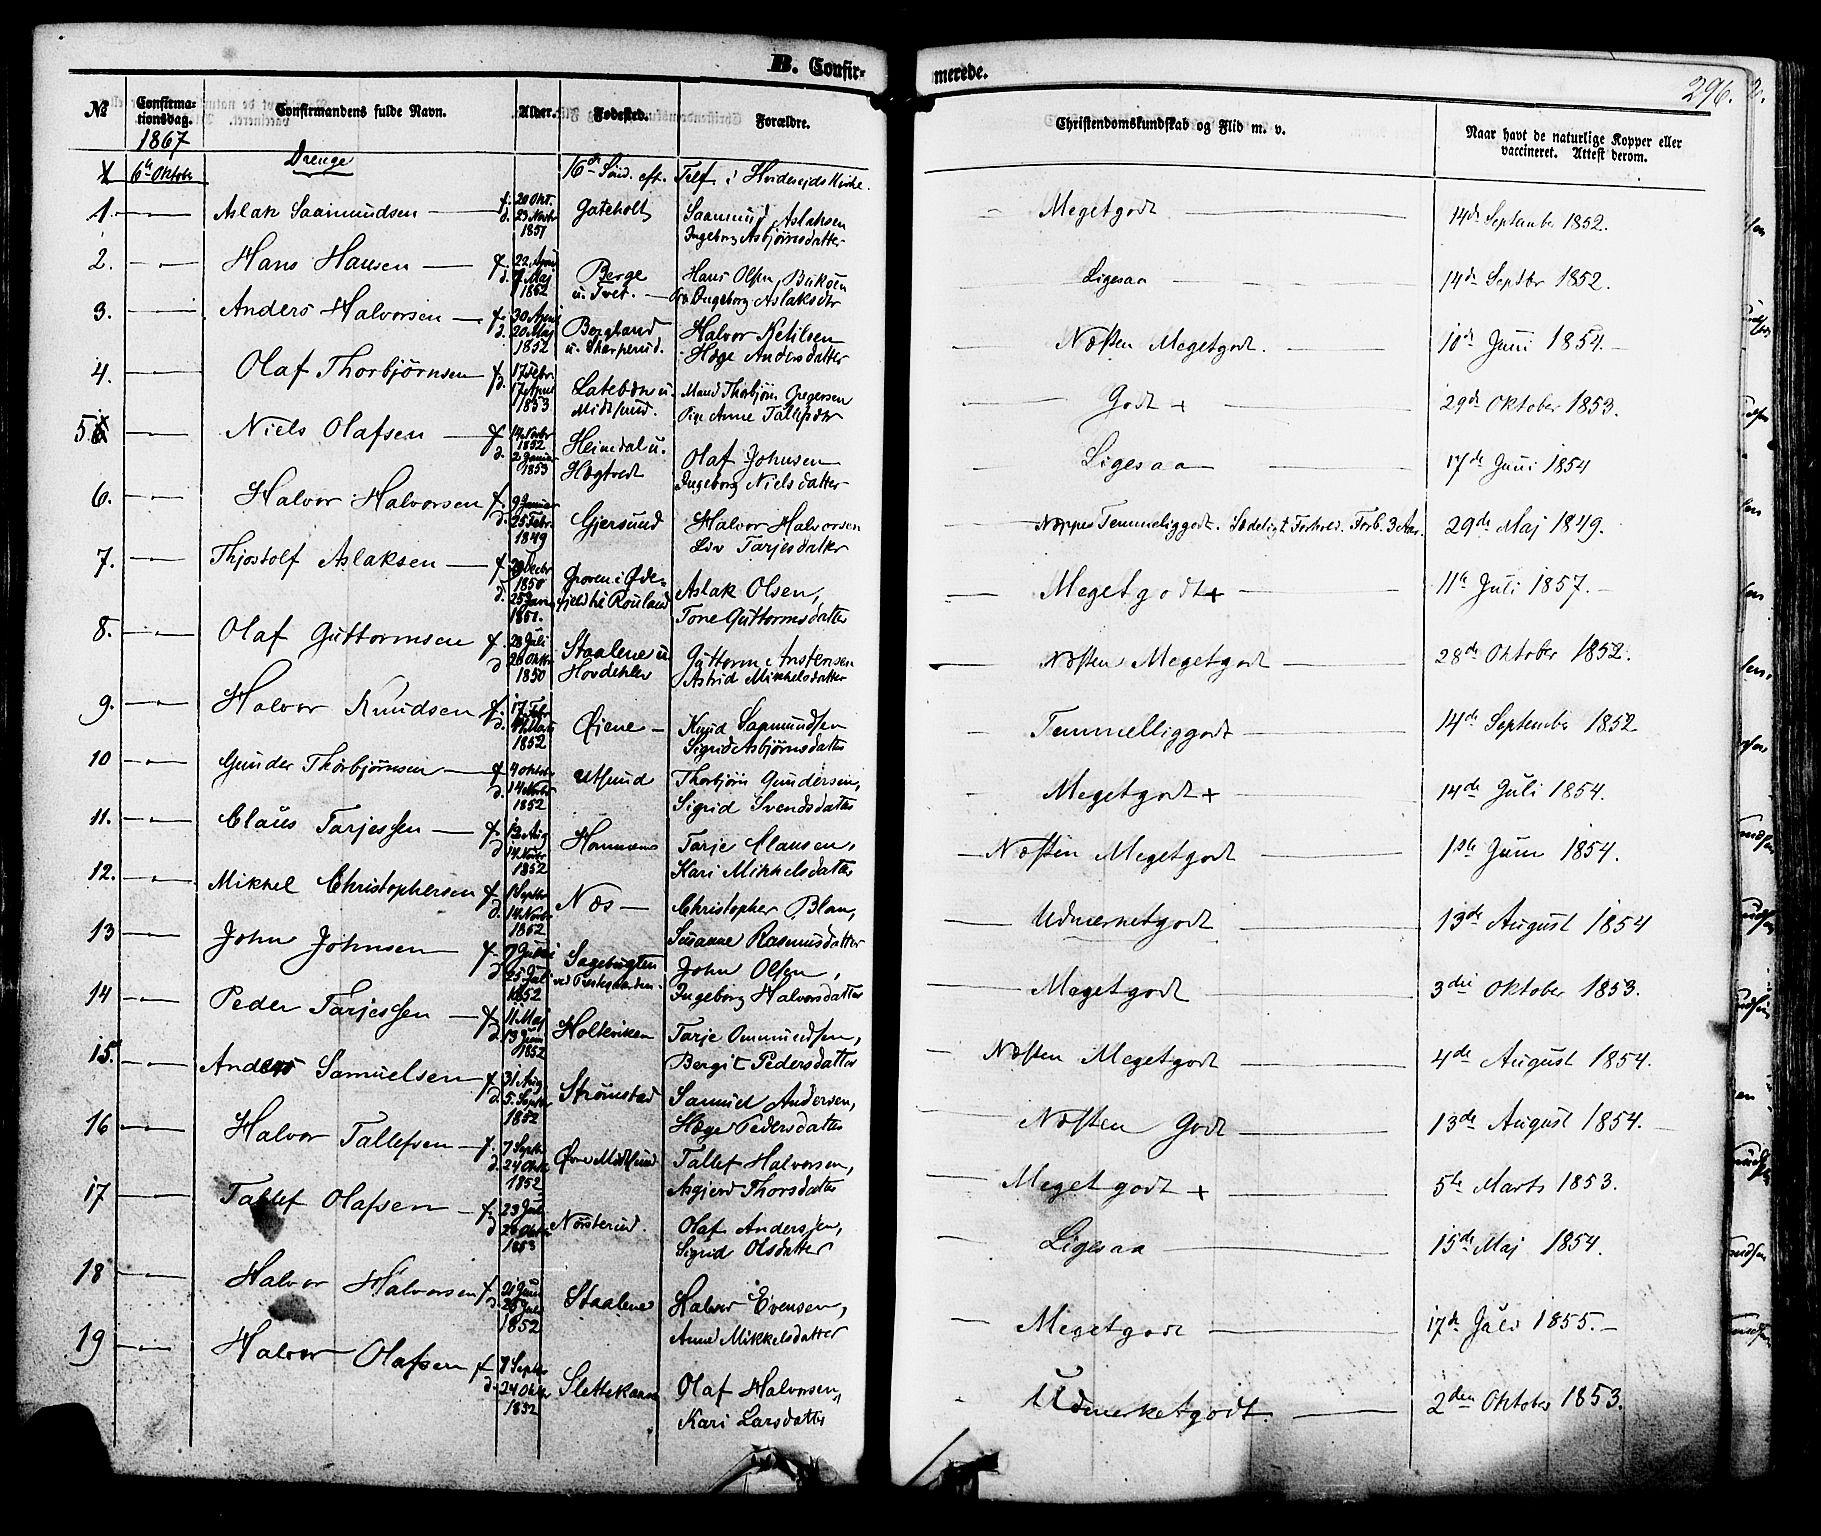 B. Confir-
merede.
296.
№ Confirma-
tionsdag. Confirmandens fulde Navn. Alder. Fødested. Forældre. Christendomskundskab og Flid m. v. Naar havt de naturlige Kopper eller
vaccineret. Attest derom.
1867
6te Oktobr Drenge 16de Sønd. eft. Tref. i Hvideseids Kirke.
1. Aslak Saamundsen f. 20 Okt. d. 23 Novbr 1851 Gateholt Saamund Aslaksen Meget godt 14de September 1852.
Ingeborg Asbjørnsdatter
2. Hans Hansen f. 22 April d. 7 Maj 1852 Berge u. Tvet. Hans Olsen Ligesaa 14de Septbr 1852.
Ingeborg Aslaksdtr
3. Anders Halvorsen f. 30 April d. 20 Maj 1852 Bergland Halvor Ketilsen Næsten Megetgodt. 10de Juni 1854.
Hæge Andersdatter
4. Olaf Thorbjørnsen f. 17 Febr. d. 17 April 1853 Midtsund. Thorbjørn Gregersen Godt + 29de Oktober 1853.
Pige Anne
5 Niels Olafsen f. 14 Novbr 1852 d. 2 Januar 1853 Heimdal u. Olaf Johnsen Ligesaa 17de Juni 1854
Ingeborg Nielsdatter
6. Halvor Halvorsen f. 9 Januar d. 25 Febr. 1849 Gjersund Halvor Halvorsen Neppe Temmeliggodt. Sædeligt Forhold. 29de Maj 1849.
Liv Tarjesdatter
7. Thjostolf Aslaksen f. 29 Decbr 1850 d. 25 Janr. 1851. Aslak Olsen, Megetgodt + 11te Juli 1857.
Tone Guttormsdatter
8. Olaf Guttormsen f. 28 Juli d. 20 Oktbr 1850 Staalene u. Guttorm Anstensen Næsten Megetgodt 28de Oktober 1852.
Astrid Mikkelsdatter
9. Halvor Knudsen f. 17 Feb. 1852 Øiene Knud Saamundsen Temmelliggodt 14de September 1852
Sigrid Asbjørnsdatter
10 Gunder Thorbjørnsen f. 4 Oktobr d. 14 Novbr 1852 Utsund Thorbjørn Gundersen, Megetgodt + 14de Juli 1854.
Sigrid Svendsdatter
11. Claus Tarjessen f. 12 Aug d. 14 Novbr 1852 Tarje Clausen, Næsten Megetgodt 1ste Juni 1854.
Kari Mikkelsdatter
12. Mikkel Christophersen f. 1 Septbr d. 14 Novbr 1852 Næs Christopher Blom, Udmerketgodt 13de August 1854
Susanne Rasmusdatter
13 John Johnsen f. 7 Juni d. 25 Juli 1852 Sagebugten ved Prestegaarden John Olsen, Megetgodt 3die Oktober 1853.
Ingeborg Halvorsdatter
14 Peder Tarjessen f. 11 Maj d. 13 Juni 1852 Holteviken Tarje Ommundsen, Næsten Megetgodt 4de August 1854.
Bergit Pedersdatter
15. Anders Samuelsen f. 31 Aug d. 5. Septbr 1852 Strømstad Samuel Andersen, Næsten Godt 13de August 1854.
Hæge Pedersdatter
16 Halvor Tallefsen f. 7 Septbr d. 24 Oktbr 1852 Øvre Midtsund Tallef Halvorsen, Megetgodt + 5te Marts 1853.
Asgjerd Thorsdatter
17 Tallef Olafsen f. 23 Juli 1853 Norsterud. Olaf Andersen, Ligesaa 15de Maj 1854.
Sigrid Olsdatter
18 Halvor Halvorsen f. 21 Juni d. 25 Juli 1852 Staalene Halvor Evensen, Megetgodt 17de Juli 1855.
Anne Mikkelsdatter
19 Halvor Olafsen f. 7 Septbr d. 24 Oktbr 1852 Slettekaasa Olaf Halvorsen, Udmerketgodt. 2den Oktober 1853.
Kari Larsdatter